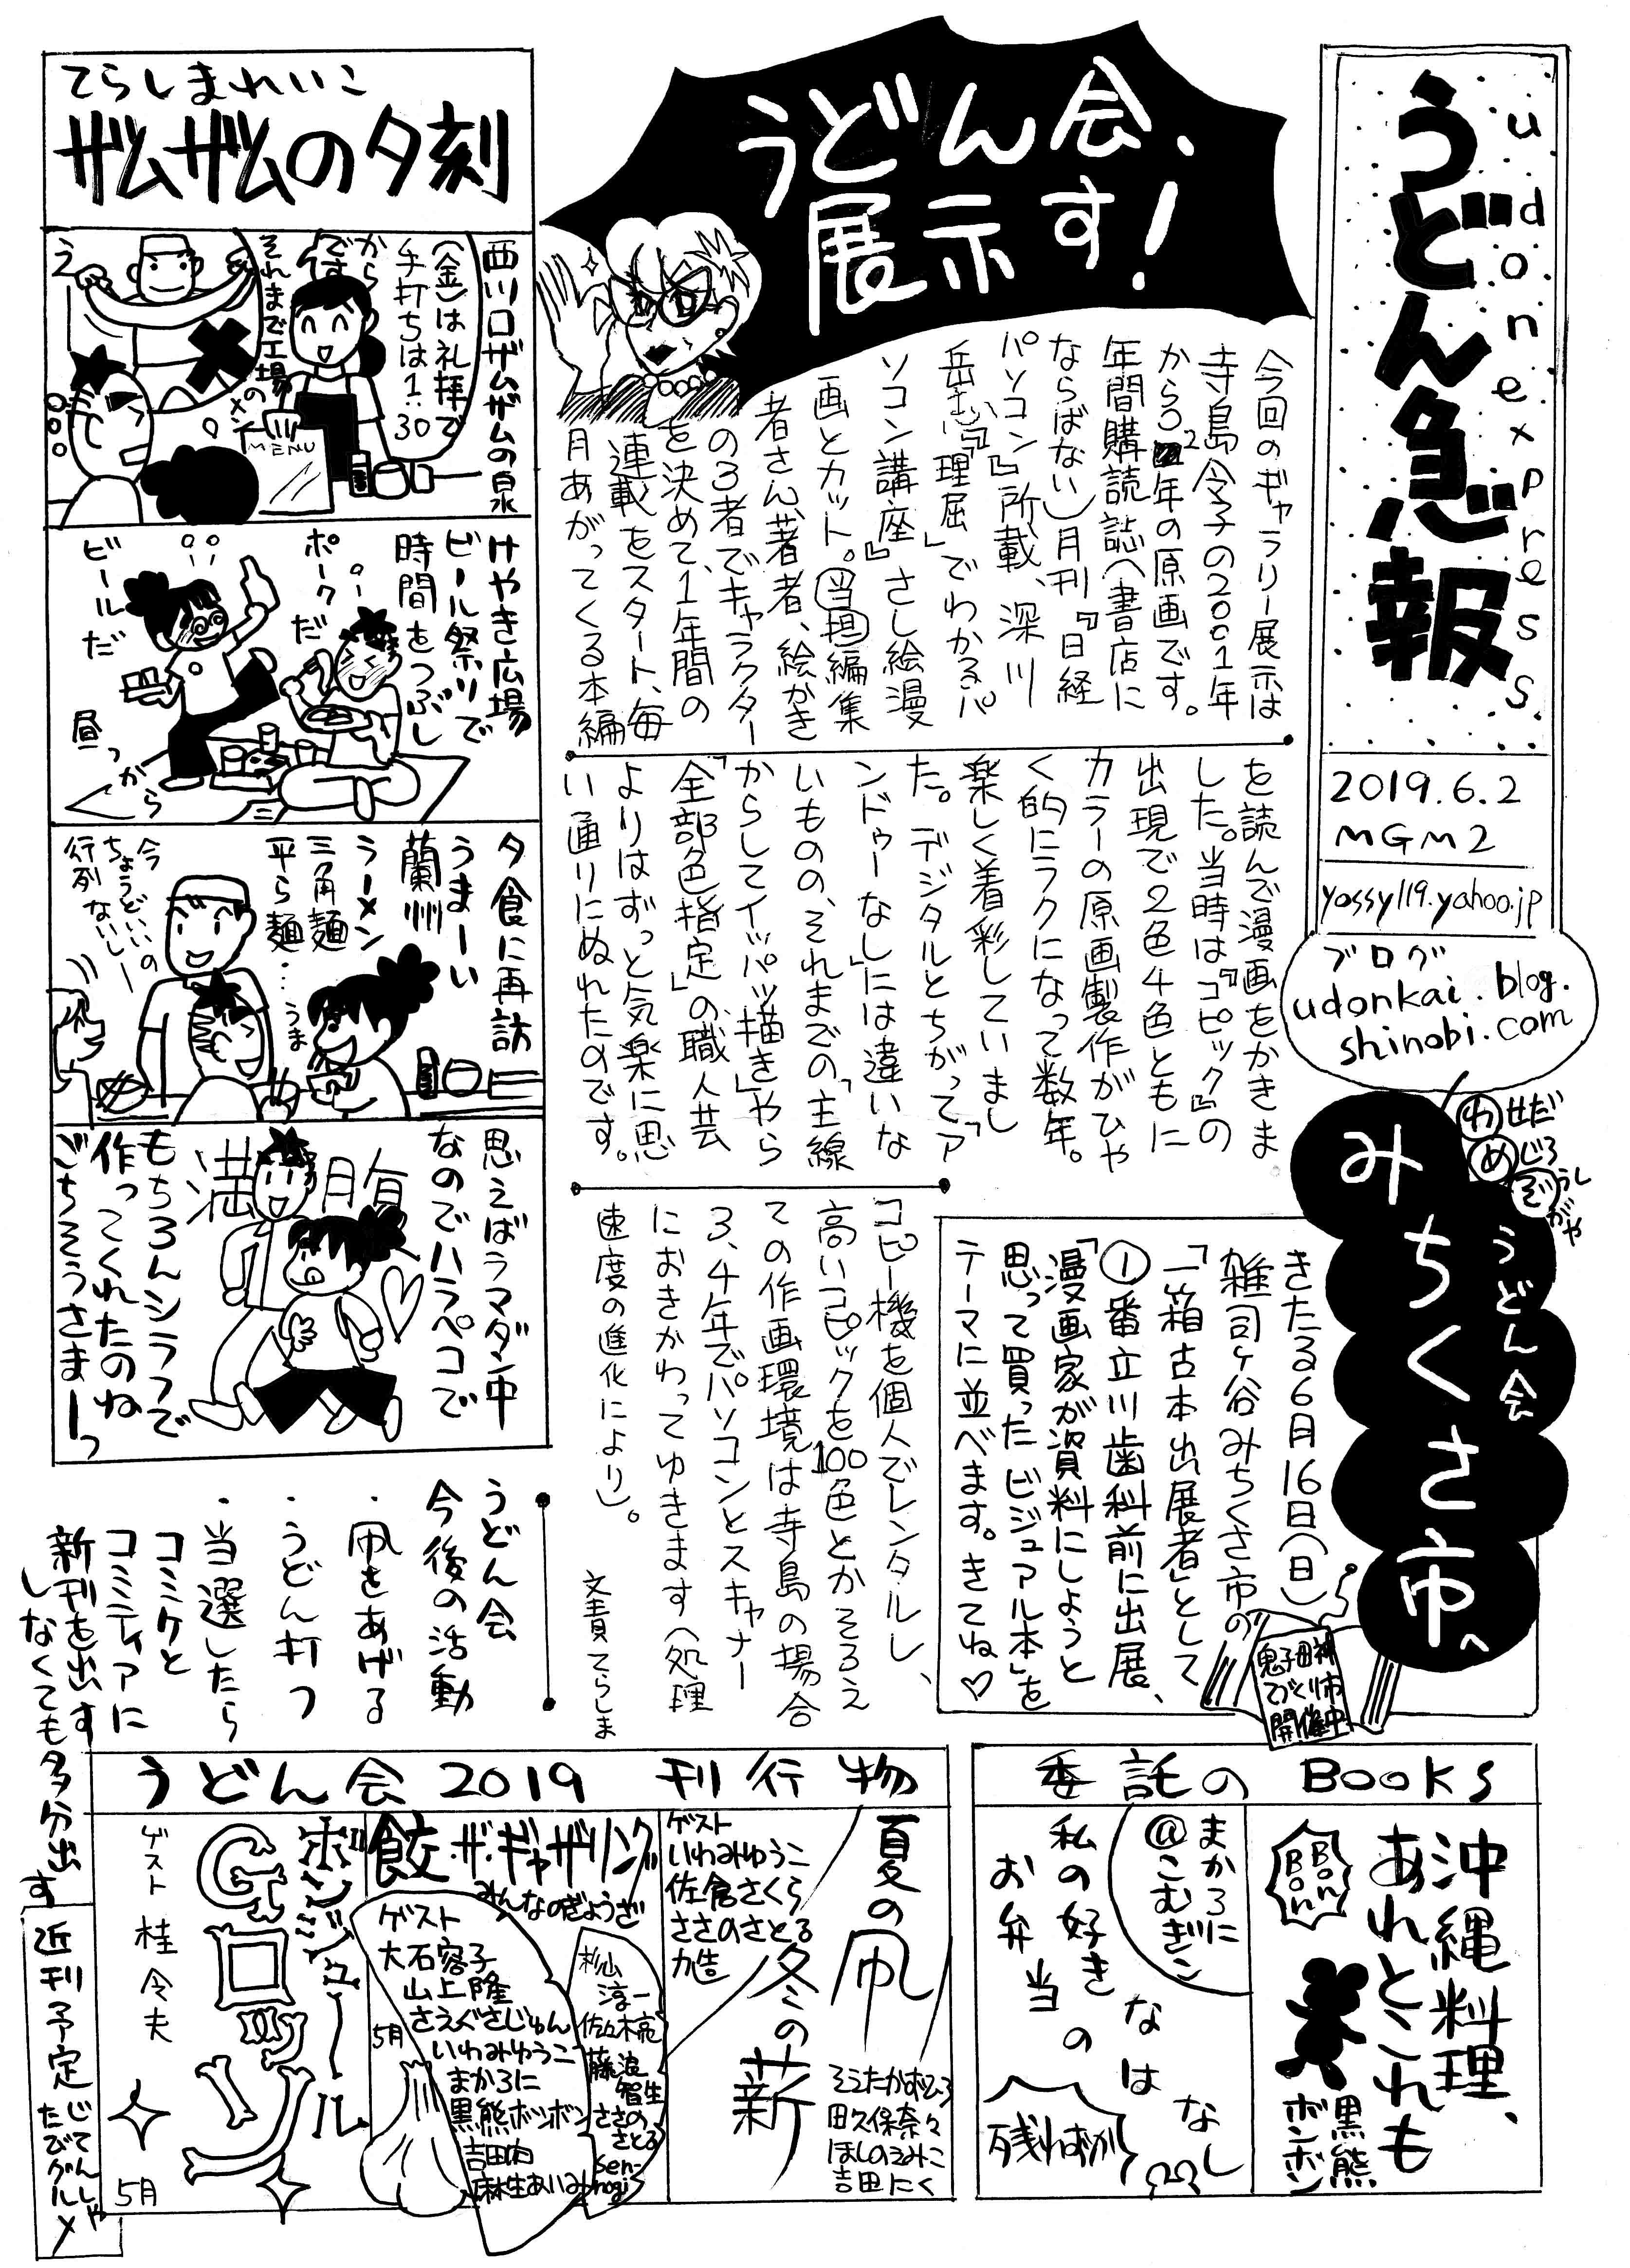 うどん急報
udon express
2019.6.2
MGM2
yossy119.yahoo.jp
ブログ
udonkai.blog.
shinobi.com
うどん会、
展示す!
今回のギャラリー展示は
寺島令子の2001年
から02年の原画です。
年間購読誌(書店に
ならばない)月刊『日経
パソコン』所載、深川
岳志『「理屈」でわかるパ
ソコン講座』さし絵漫
画とカット。担当編集
者さん、著者、絵かき
の3者でキャラクター
を決めて、1年間の
連載をスタート、毎
月あがってくる本編
を読んで漫画をかきま
した。当時は『コピック』の
出現で2色4色ともに
カラーの原画製作がひや
く的にラクになって数年。
楽しく着彩していまし
た。デジタルとちがって「ア
ンドゥーなし」には違いな
いものの、それまでの「主線
からしてイッパツ描き」やら
「全部色指定」の職人芸
よりはずっと気楽に思
い通りにぬれたのです。
コピー機を個人でレンタルし、
高いコピックを100色とかそろえ
ての作画環境は寺島の場合
3、4年でパソコンとスキャナー
におきかわってゆきます(処理
速度の進化により)。
文責てらしま
てらしまれいこ
ザムザムの夕刻
西川口ザムザムの泉
(金)は礼拝で
手打ちは1:30
からです
それまで工場のメン
MENU
え
けやき広場
ビール祭りで
時間をつぶし
ポークだ
ビールだ
昼っから
夕食に再訪
うまーい
蘭州
ラーメン
三角麺
平ら麺…うま
今
ちょうどいいの
行列ないしー
思えばラマダン中
なのでハラペコで
満腹
もちろんシラフで
作ってくれたのね
ごちそうさまーっ
わせだ
めじろ
ぞうしがや
うどん会
みちくさ市へ
きたる6月16日(日)
雑司ヶ谷みちくさ市の
「一箱古本出展者」として
①番立川歯科前に出展、
「漫画家が資料にしようと
思って買ったビジュアル本」を
テーマに並べます。きてね♡
鬼子母神
てづくり市
開催中
うどん会
今後の活動
・凧をあげる
・うどん打つ
・当選したら
コミケと
コミティアに
新刊を出す
しなくても多分出す
近刊予定
じてんしゃ
たびグルメ
委託のBOOKS
沖縄料理、
あれとこれも
BonBon
黒熊
ボンボン
まかろに
@こむぎン
私の好きな
お弁当のはなし
残ればか
うどん会2019 刊行物
夏の凧
冬の薪
ゲスト
いわみゆうこ
佐倉さくら
ささのさとる
力造
そえたかずひろ
田久保奈々
ほしのるみこ
吉田にく
餃ザ・ギャザリング
みんなのぎょうざ
ゲスト
大石容子
山上隆
さえぐさじゅん
いわみゆうこ
まかろに
黒熊ボンボン
吉田肉
麻生あいみ
杉山淳一
佐々木亮
藤浪智生
ささのさとる
Sen-nogi
5月
ボンジュール
G口ッソ
ゲスト 桂令夫
5月